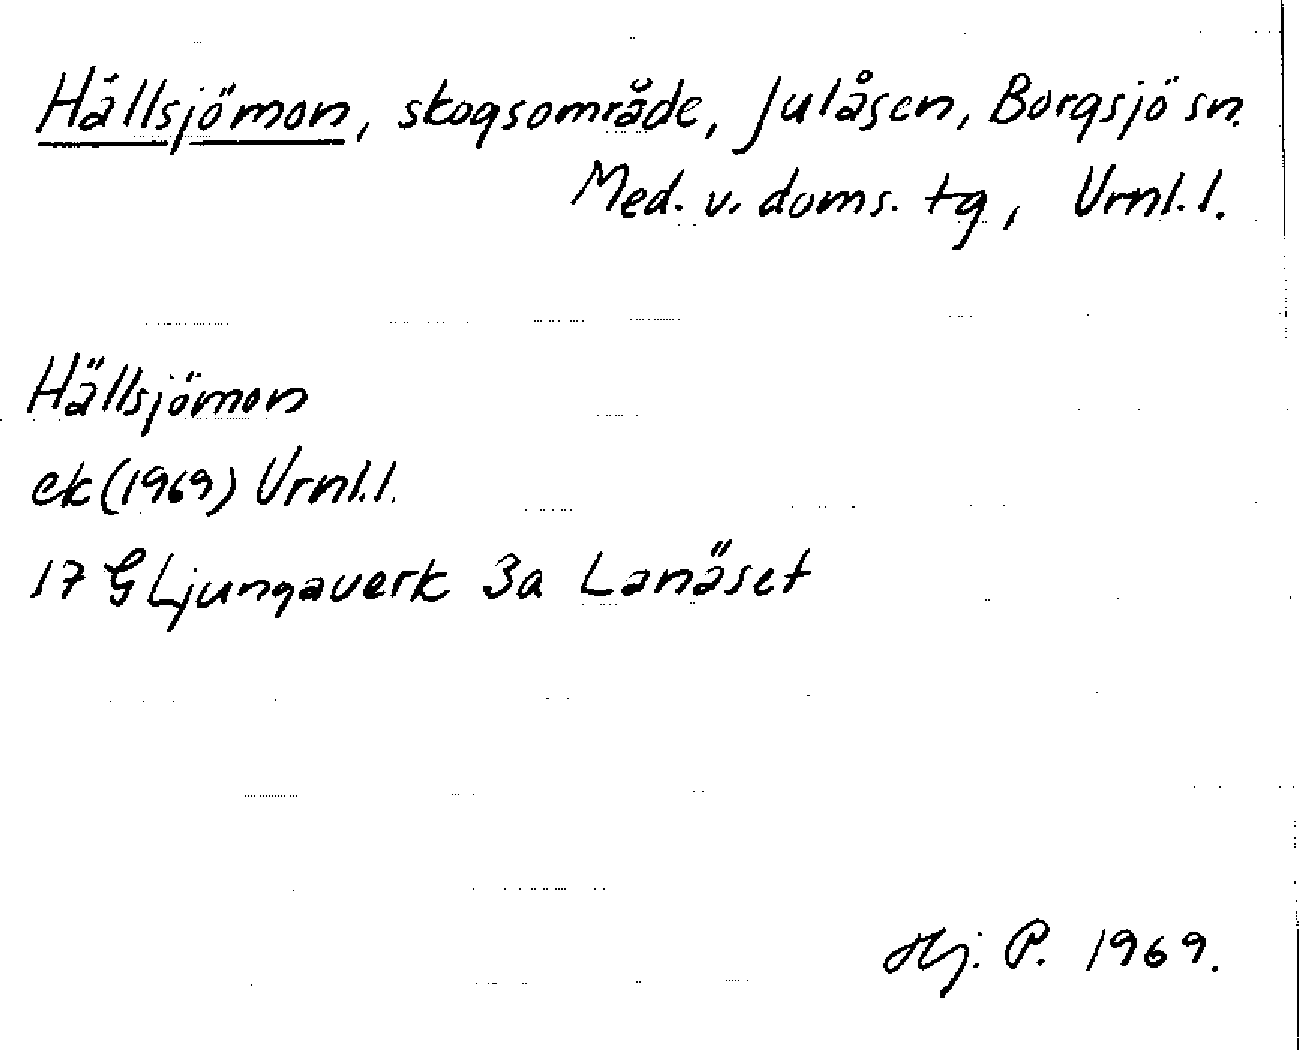 Hällsjömon, skogsområde, Julåsen, Borgsjö sn.
Med. v. doms. tg, Vrnl.l.
Hällsjömon
ek (1969) Vrnl.l.
17 G Ljungaverk 3a Lanäset
Hj. P. 1969.